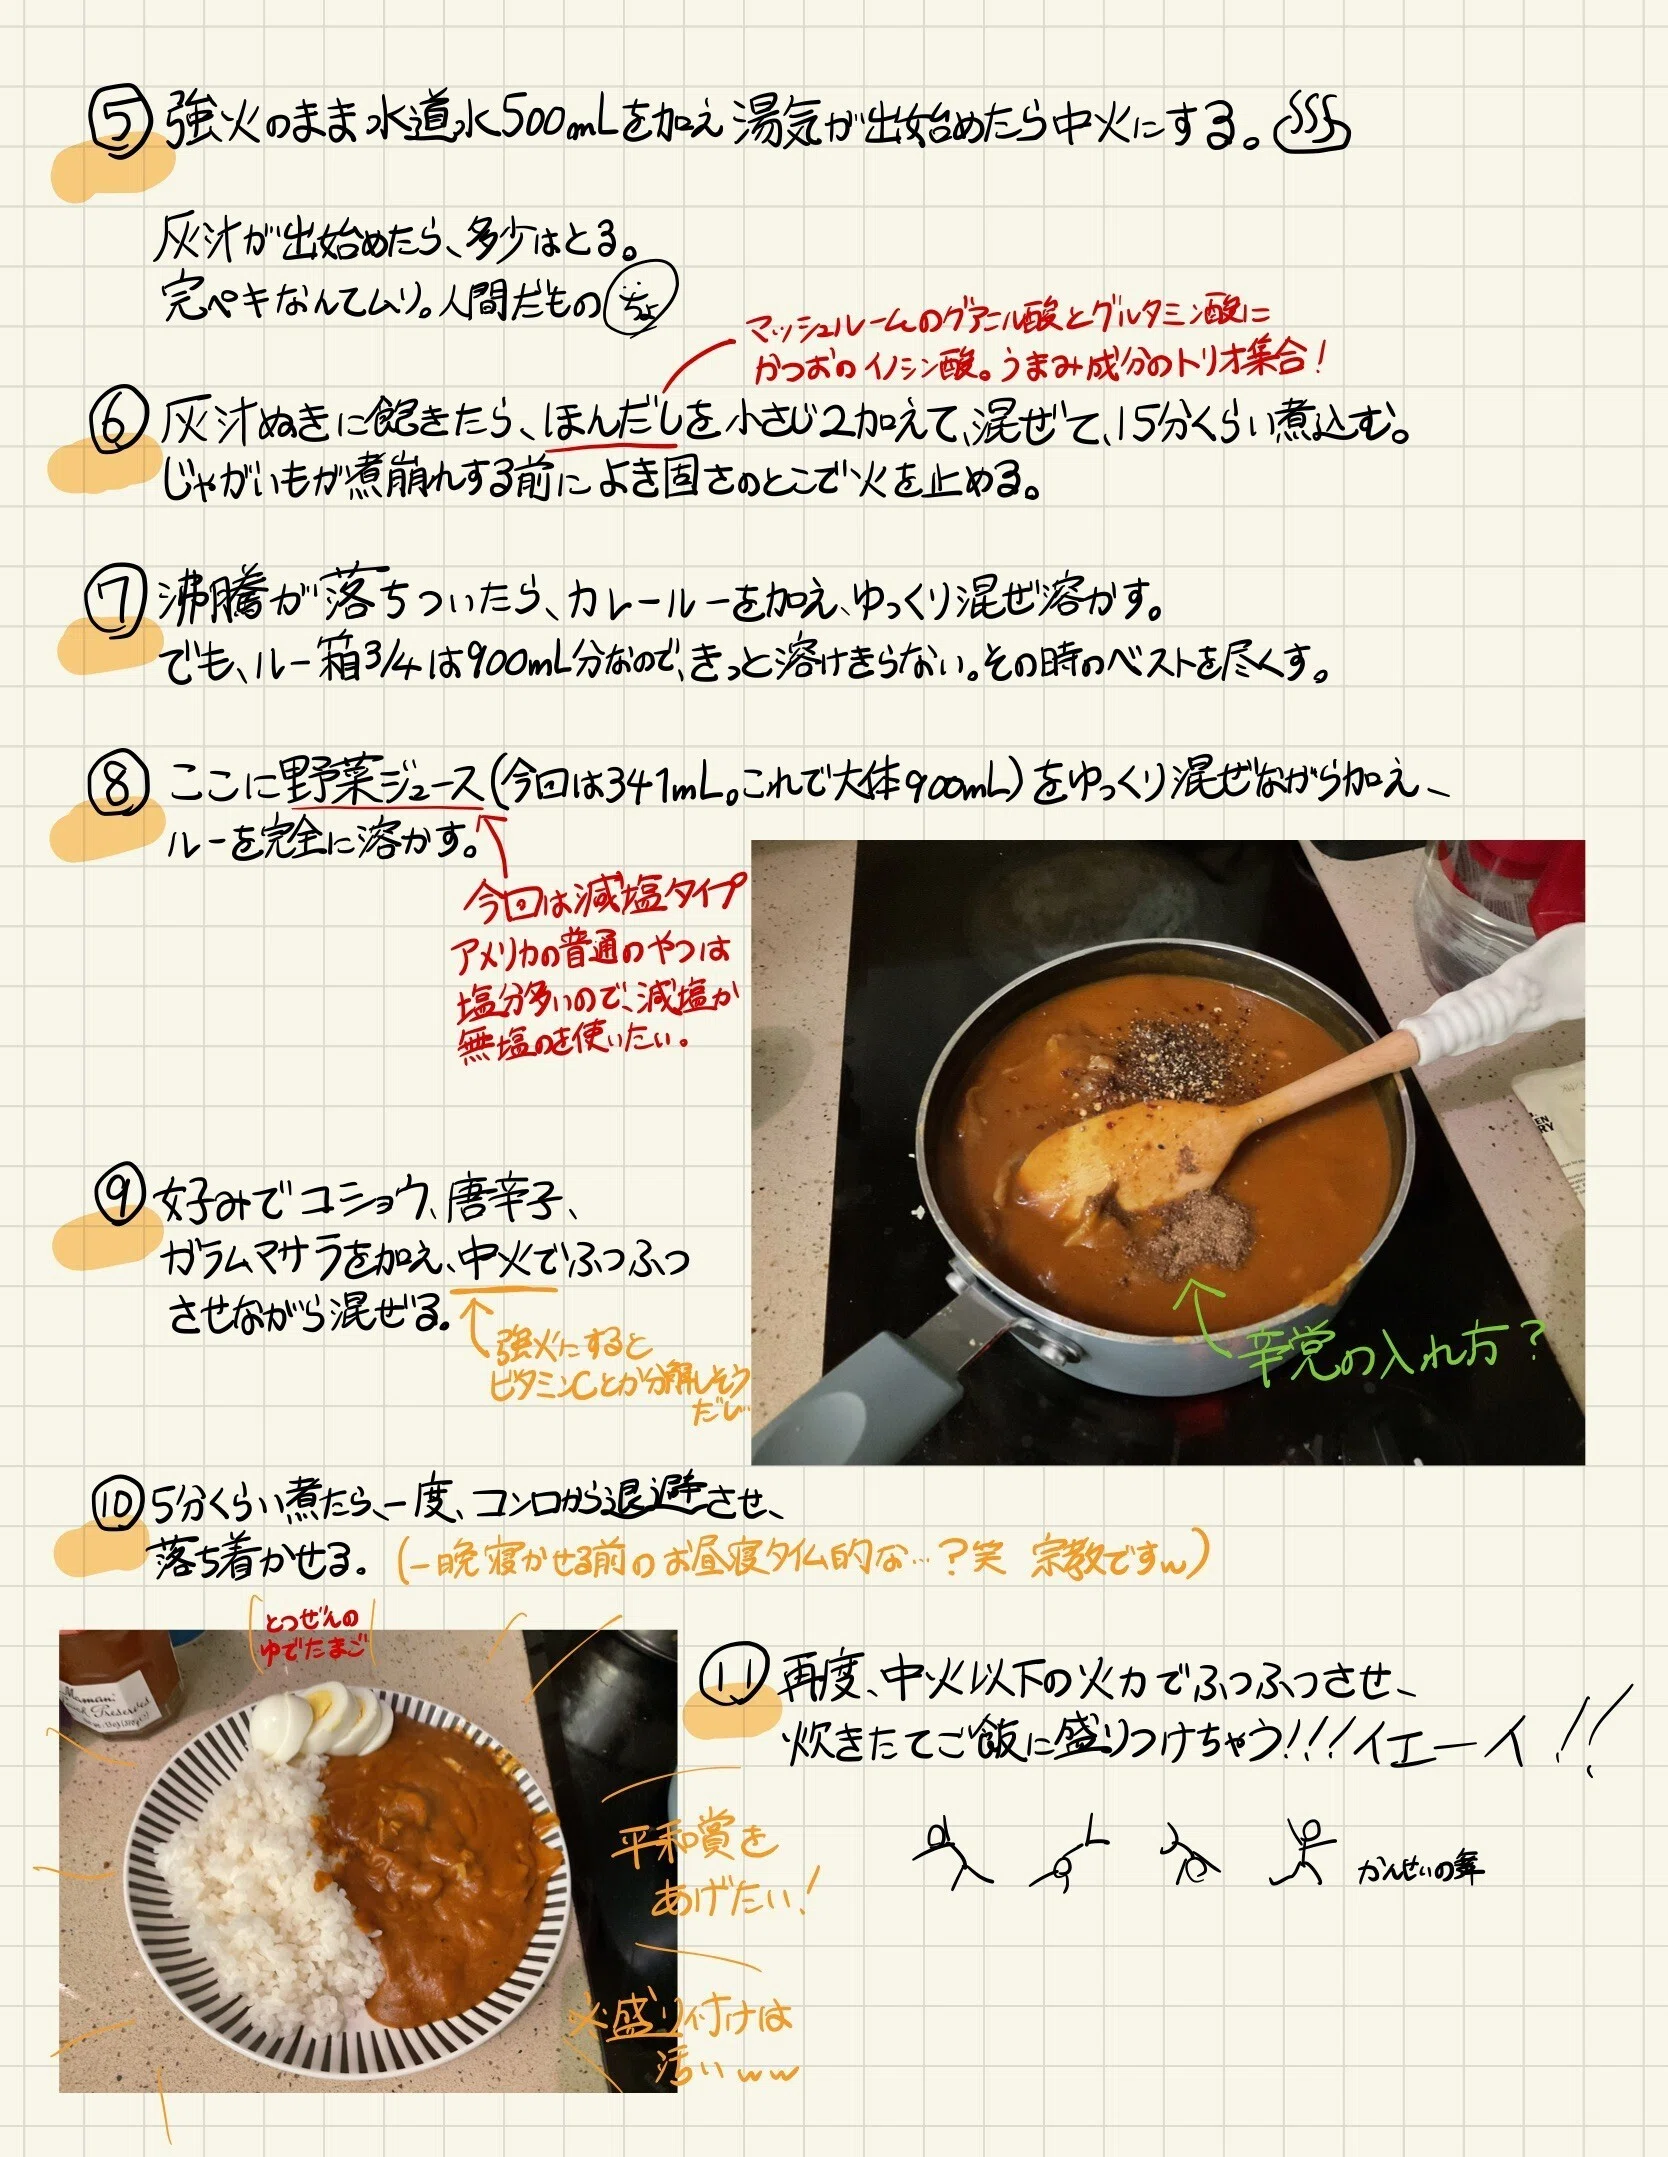 ⑤ 強火のまま水道水500mLを加え湯気が出始めたら中火にする。
灰汁が出始めたら、多少はとる。
完ペキなんてムリ。人間だもの
マッシュルームのグアニル酸とグルタミン酸に
かつおのイノシン酸。うまみ成分のトリオ集合!
⑥ 灰汁ぬきに飽きたら、ほんだしを小さじ2加えて、混ぜて、15分くらい煮込む。
じゃがいもが煮崩れする前によき固さのとこで火を止める。
⑦ 沸騰が落ちついたら、カレールーを加え、ゆっくり混ぜ溶かす。
でも、ルー箱3/4は900mL分なので、きっと溶けきらない。その時のベストを尽くす。
⑧ ここに野菜ジュース(今回は341mL。これで大体900mL)をゆっくり混ぜながら加え、
ルーを完全に溶かす。
今回は減塩タイプ
アメリカの普通のやつは
塩分多いので、減塩か
無塩のを使いたい。
⑨ 好みでコショウ、唐辛子、
ガラムマサラを加え、中火でふつふつ
させながら混ぜる。
強火にすると
ビタミンCとか分解しそう
だし
辛党の入れ方?
⑩ 5分くらい煮たら、一度、コンロから退避させ、
落ち着かせる。(一晩寝かせる前のお昼寝タイム的な…?笑 宗教ですw)
とつぜんの
ゆでたまご
⑪ 再度、中火以下の火力でふつふつさせ、
炊きたてご飯に盛りつけちゃう!!!イエーイ!!
平和賞を
あげたい!
かんせいの舞
※盛り付けは
汚いww